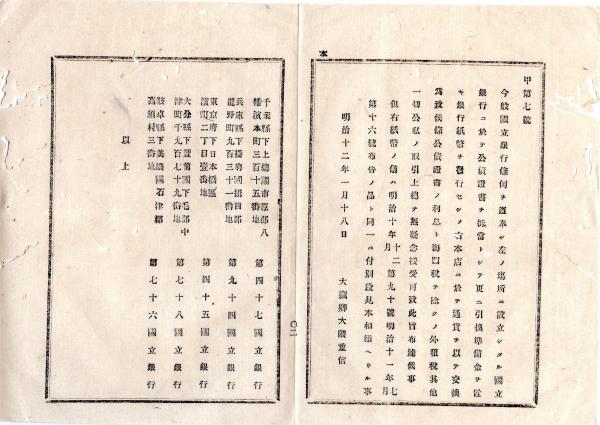 本
甲第七號
今般國立銀行條例ヲ遵奉シ左ノ場所ニ設立シタル國立
銀行ニ於テ公債證書ヲ抵當トシテ更ニ引換準備金ヲ置
キ銀行紙幣ヲ發行セシメ右本店ニ於テ通貨ヲ以テ交換
為致候條公債證書ノ利息ト海關稅ヲ除クノ外租稅其他
一切公私ノ取引上總テ無疑念授受可致此旨布達候事
但右紙幣ノ儀ハ明治十年十二月第九十號明治十一年七月
第十六號布告ノ品ト同一ニ付別段見本相添ヘサル事
明治十二年一月十八日
大藏卿大隈重信
〇二
千葉縣下上總國市原郡八幡濱本町三百十五番地 第四十七國立銀行
兵庫縣下播磨國揖西郡龍野町九百三十一番地 第九十四國立銀行
東京府下日本橋區濱町二丁目壹番地 第四十五國立銀行
大分縣下豐前國下毛郡中津町千九百七十九番地 第七十八國立銀行
岐阜縣下美濃國石津郡高須村三番地 第七十六國立銀行
以上